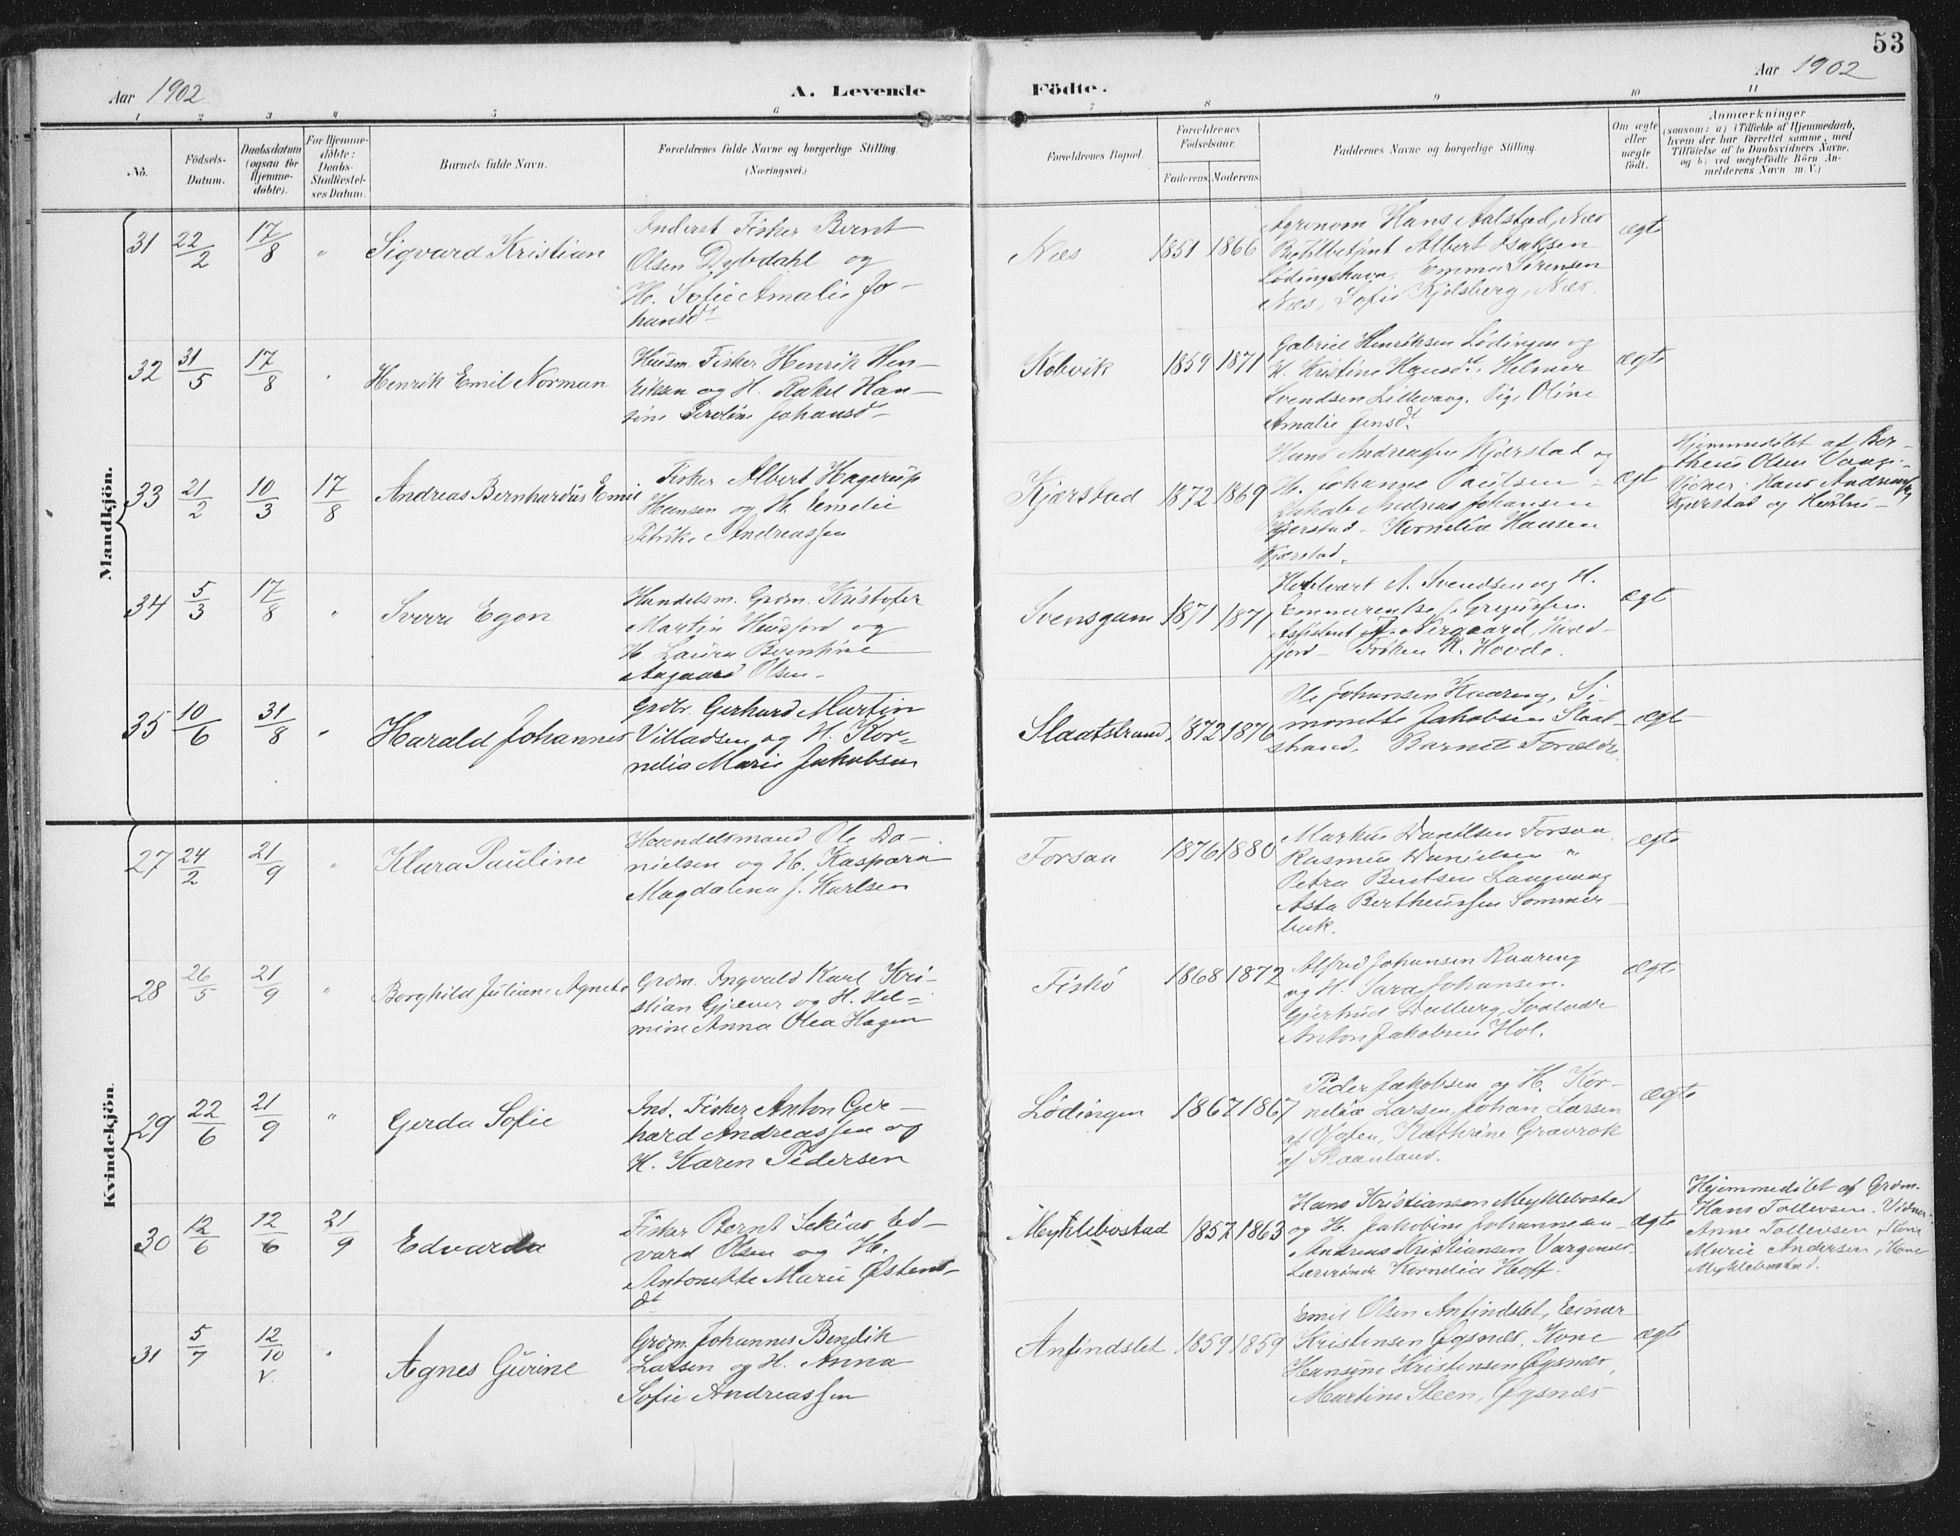 53
Aar 1902
A. Levende
Födte.
Aar 1902
1 2 3 4 5 6 7 8 9 10 11
No.
Födsels-
Datum.
Daabsdatum
(ogsaa for
Hjemme-
döbte).
For Hjemme-
döbte:
Daabs-
Stadfæstel-
ses Datum.
Barnets fulde Navn.
Forældrenes fulde Navne og borgerlige Stilling
(Næringsvei.)
Forældrenes Bopæl.
Forældrenes
Födselsaar.
Faderens.
Moderens.
Faddernes Navne og borgerlige Stilling.
Om ægte
eller
uægte
födt.
Anmærkninger
(saasom: a) i Tilfælde af Hjemmedaab,
hvem der har forrettet samme, med
Tilföielse af to Daabsvidners Navne,
og b) ved uægtefödte Börn An-
melderens Navn m. V.)
Mandkjön.
31 22/2 17/8 " Sigvard Kristian
Inderst Fisker Bernt
Olsen Dybdahl og
H. Sofie Amalie Jo-
hansdt
Næs 1851 1866
Agronom Hans Aalstad, Næs
Albert Isaksen
Lødingshavn, Emma Sørensen
Næs, Sofie Kjelsberg, Næs.
ægt
32 31/5 17/8 " Henrik Emil Norman
Husm. Fisker Henrik Hen-
riksen og H. Rakel Han-
sine Johansdt
Kobvik 1859 1871
Gabriel Henriksen Lødingen og
H. Kristine Hansdt, Helmer
Svendsen Lillevaag. Pige Oline
Amalie Jensdt.
ægte
33 21/2 10/3 17/8 Andreas Bernhardus Emil
Fisker Albert Hagerup
Hansen og H. Emelie
Petrike Andreassen
Kjærstad 1872 1869
Hans Andreassen Kjærstad og
H. Johanne Paulsen -
Andreas Johansen
Kjærstad - Kornelia Hansen
Kjærstad.
ægt
Hjemmedøbt af Ber-
theus Olsen
Vidner: Hans Andreassen
Kjærstad og Hustru -
34 5/3 17/8 " Sverre Egon
Handelsm. Grdm. Kristofer
Martin Husfjord og
H. Laura Berntine
Aagaard Olsen.
Svensgam 1871 1871
A. Svendsen og H.
Emmerentse f. Gregussen.
Assistent Nergaard, Kvæd-
fjord - Frøken R. Hovde.
ægt
35 10/6 31/8 " Harald Johannes
Grdbr. Gerhard Martin
Villadsen og H. Kor-
nelia Marie Jakobsen
Slaatstrand 1872 1876
Ole Johansen Kaaring, Si-
monette Jakobsen Slaat-
strand. Barnets Forældre
ægte
Kvindekjön.
27 24/2 21/9 " Klara Pauline
Handelsmand Ole Da-
nielsen og H. Kaspara
Magdalena f. Karlsen
Forsaa 1876 1880
Markus Danielsen Forsaa
Rasmus Danielsen "
Petra Bentsen Langvaag
Asta Bertheussen Sommer-
buk.
ægte
28 26/5 21/9 " Borghild Juliane Agnete
Grdm. Ingvald Karl Kri-
stian Gjæver og H. Hel-
mine Anna Olea Hagen
Fiskø 1868 1872
Alfred Johansen Kaaring
og H. Sara Johansen.
Gjertrud Dalberg, Svolvær
Anton Jakobsen Hol.
ægte
29 22/6 21/9 " Gerda Sofie
Ind. Fisker Anton Ger-
hard Andreassen og
H. Karen Pedersen
Lødingen 1867 1867
Peder Jakobsen og H. Kor-
nelia Larsen, Johan Larsen
af Ofoten, Kathrine Gravrok
af Skaanland.
ægte
30 12/6 12/6 21/9 Edvarda
Fisker Bernt Sekias Ed-
vard Olsen og H.
Antonette Marie Østens-
dt
Myklebostad 1857 1863
Hans Kristiansen Myklebostad
og H. Jakobine Johannesen
Andreas Kristiansen
Lærerinde Kornelia Hoff.
ægte
Hjemmedøbt af Grdm.
Hans Tollevsen. Vidner:
Anne Tollevsen, Kone
Marie Andersen, Kone
Myklebostad.
31 5/7 12/10 v. " Agnes Gurine
Grdm. Johannes Bendik
Larsen og H. Anna
Sofie Andreassen
Anfindslet 1859 1859
Emil Olsen Anfindslet, Einar
Kristensen Øgsnæs, Kone
Hansine Kristensen Øgsnæs,
Martine Steen, Øgsnæs
ægte